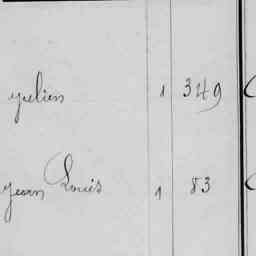 Julien 1 349
Jean Louis 1 83